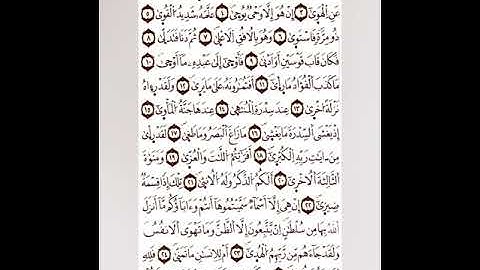 عَنِ الْهَوَىٰ ٣ إِنْ هُوَ إِلَّا وَحْيٌ يُوحَىٰ ٤ عَلَّمَهُ شَدِيدُ الْقُوَىٰ ٥
ذُو مِرَّةٍ فَاسْتَوَىٰ ٦ وَهُوَ بِالْأُفُقِ الْأَعْلَىٰ ٧ ثُمَّ دَنَا فَتَدَلَّىٰ ٨
فَكَانَ قَابَ قَوْسَيْنِ أَوْ أَدْنَىٰ ٩ فَأَوْحَىٰ إِلَىٰ عَبْدِهِ مَا أَوْحَىٰ ١٠
مَا كَذَبَ الْفُؤَادُ مَا رَأَىٰ ١١ أَفَتُمَارُونَهُ عَلَىٰ مَا يَرَىٰ ١٢ وَلَقَدْ رَءَاهُ
نَزْلَةً أُخْرَىٰ ١٣ عِندَ سِدْرَةِ الْمُنتَهَىٰ ١٤ عِندَهَا جَنَّةُ الْمَأْوَىٰ ١٥
إِذْ يَغْشَى السِّدْرَةَ مَا يَغْشَىٰ ١٦ مَا زَاغَ الْبَصَرُ وَمَا طَغَىٰ ١٧ لَقَدْ رَأَىٰ
مِنَ ايَٰتِ رَبِّهِ الْكُبْرَىٰ ١٨ أَفَرَٰيْتُمُ اللَّٰتَ وَالْعُزَّىٰ ١٩ وَمَنَوٰةَ
الثَّالِثَةَ الْأُخْرَىٰ ٢٠ أَلَكُمُ الذَّكَرُ وَلَهُ الْأُنثَىٰ ٢١ تِلْكَ إِذًا قِسْمَةٌ
ضِيزَىٰ ٢٢ إِنْ هِيَ إِلَّا أَسْمَاءٌ سَمَّيْتُمُوهَا أَنتُمْ وَءَابَاؤُكُم مَّا أَنزَلَ
اللَّهُ بِهَا مِن سُلْطَٰنٍ إِن يَتَّبِعُونَ إِلَّا الظَّنَّ وَمَا تَهْوَى الْأَنفُسُ
وَلَقَدْ جَاءَهُم مِّن رَّبِّهِمُ الْهُدَىٰ ٢٣ أَمْ لِلْإِنسَٰنِ مَا تَمَنَّىٰ ٢٤ فَلِلَّهِ